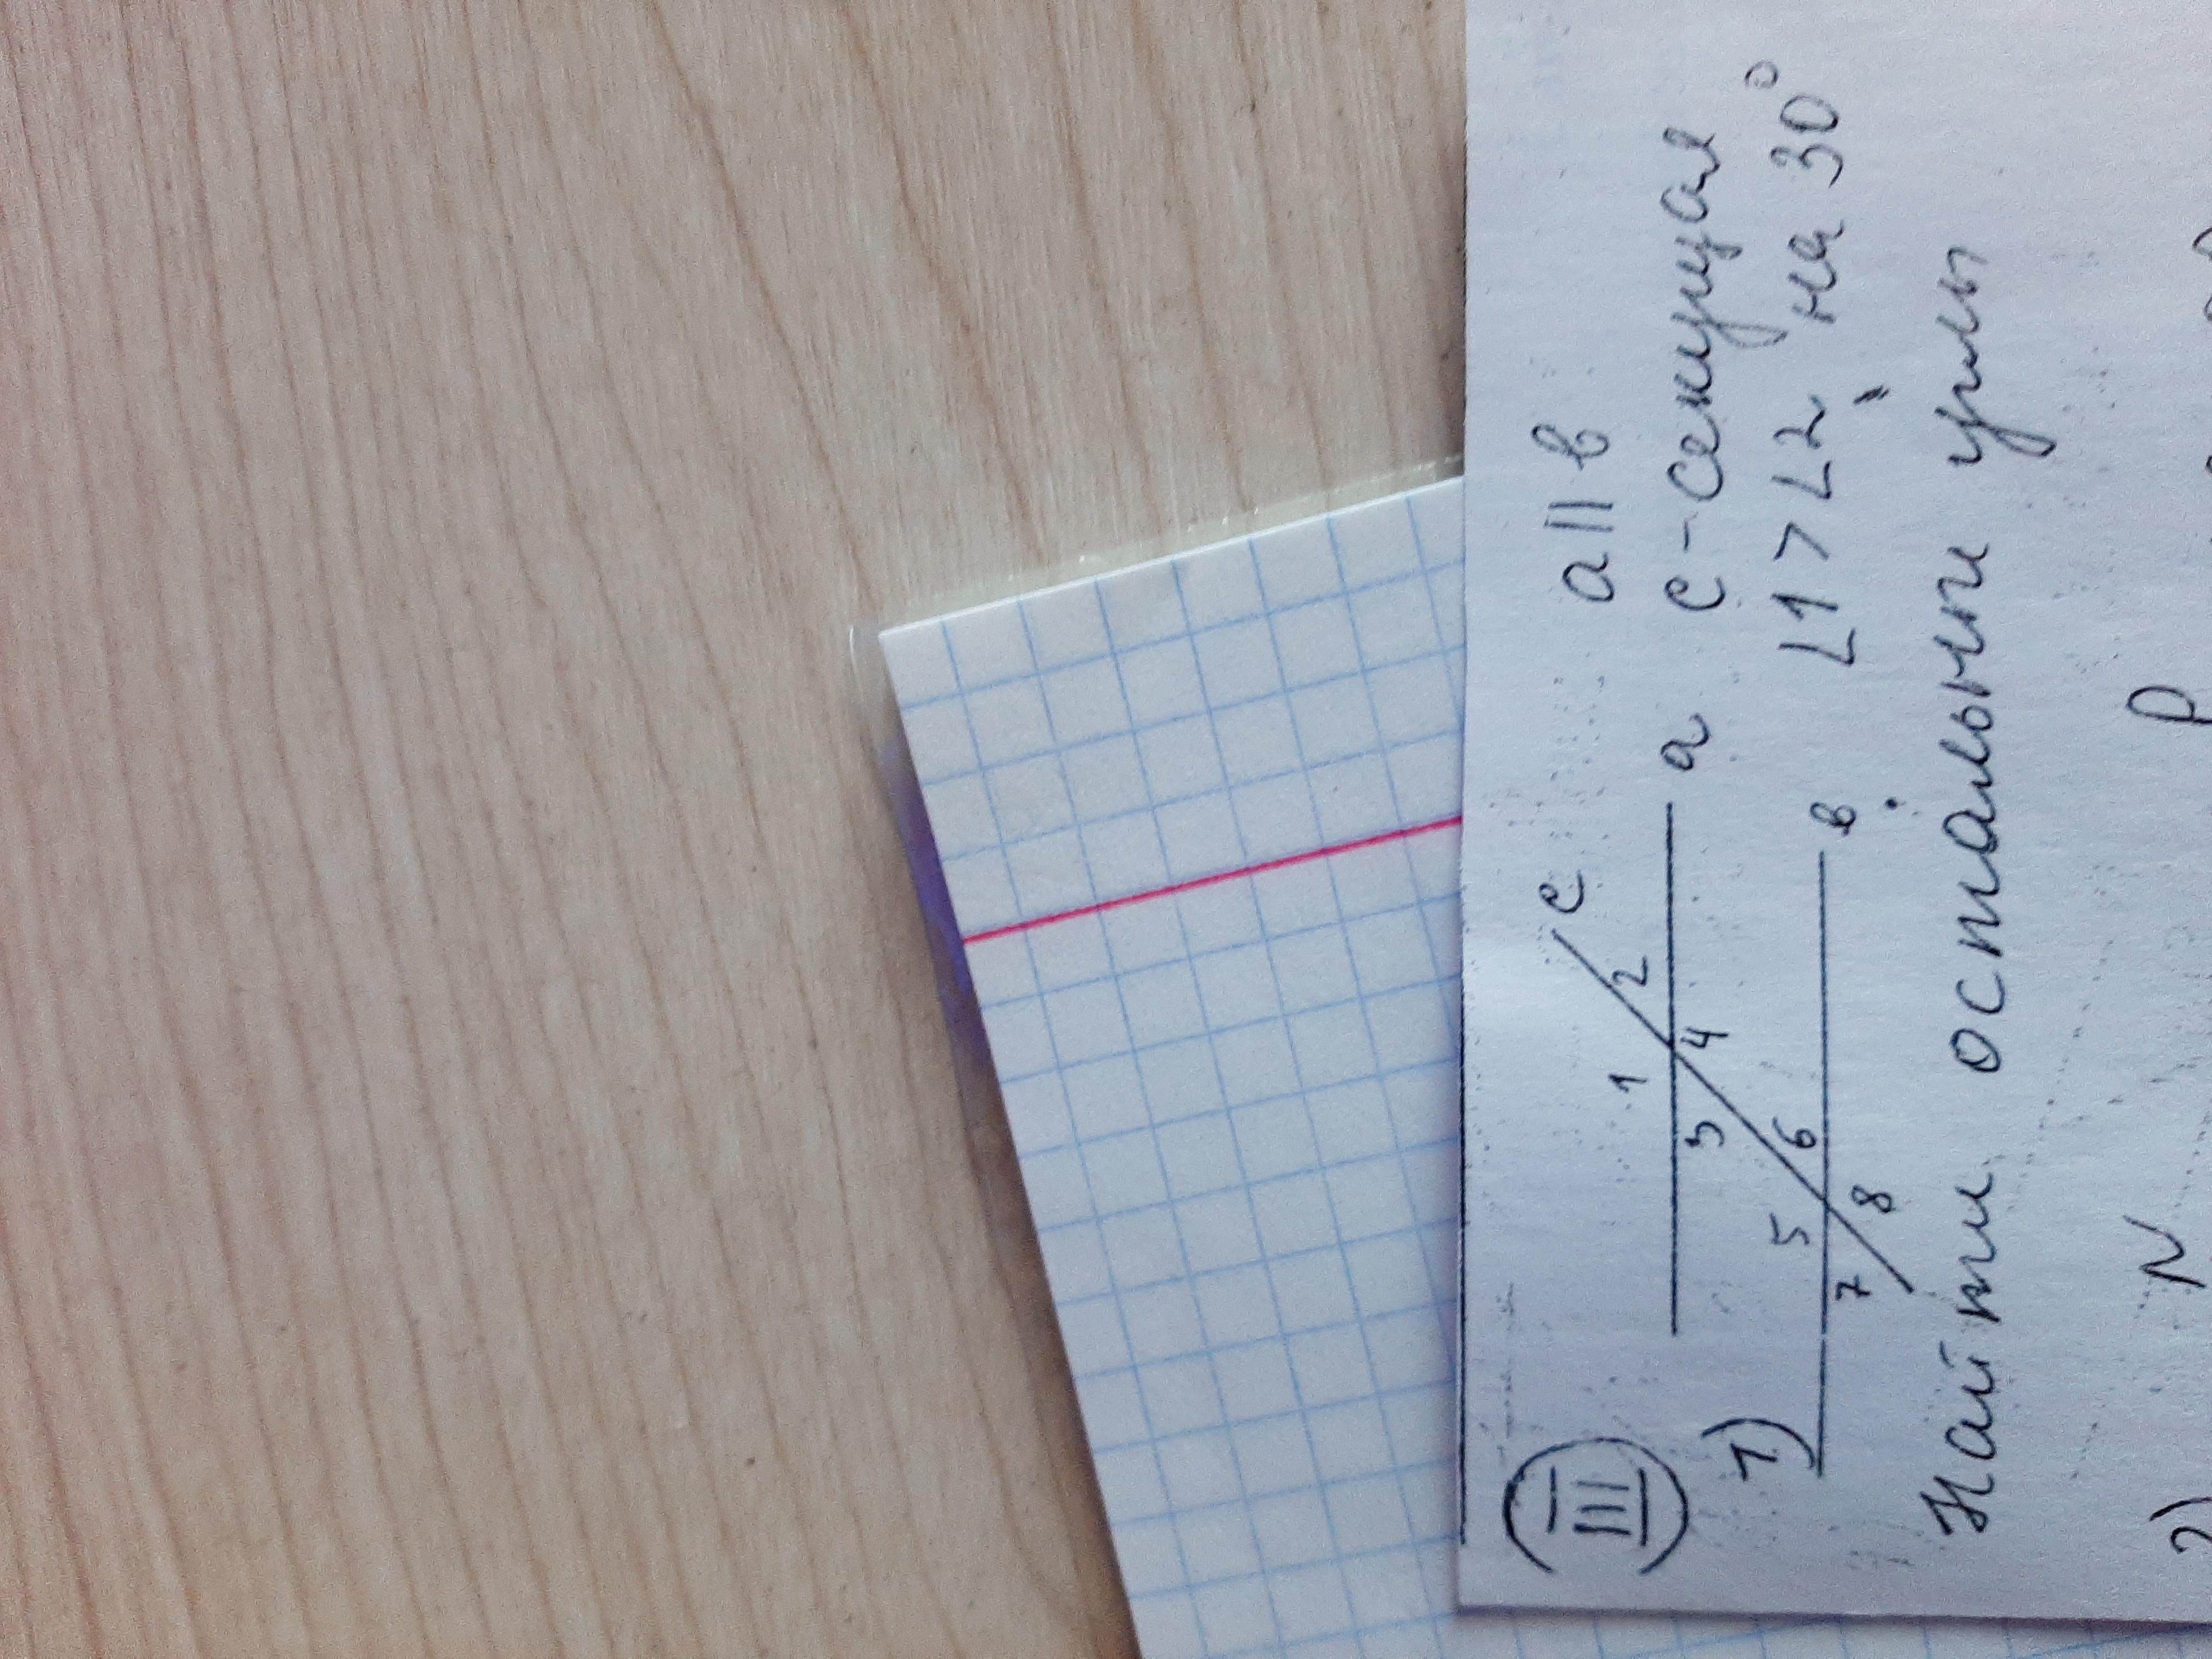 III
a || в
1)
c
a
c - секущая
1 2
3 4
∠1 > ∠2 на 30°
5 6
в
7 8
Найти остальные углы
2)
N
P